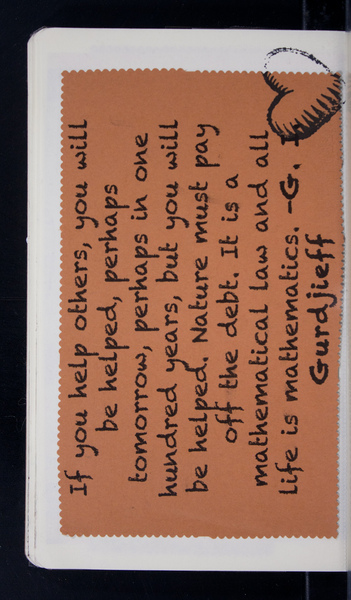 If you help others, you will
be helped, perhaps
tomorrow, perhaps in one
hundred years, but you will
be helped. Nature must pay
off the debt. It is a
mathematical law and all
life is mathematics. -G.
Gurdjieff